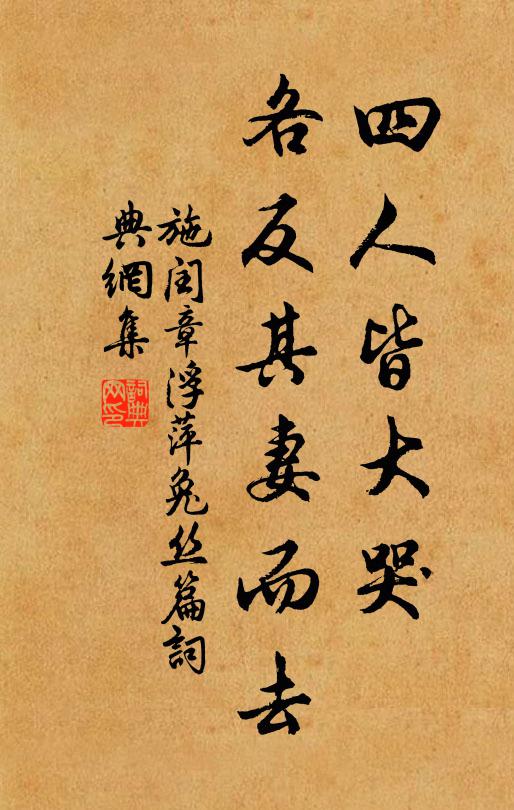 四人皆大哭
各反其妻而去
施閏章浮萍兔丝篇詞
典網集
詞典
网印